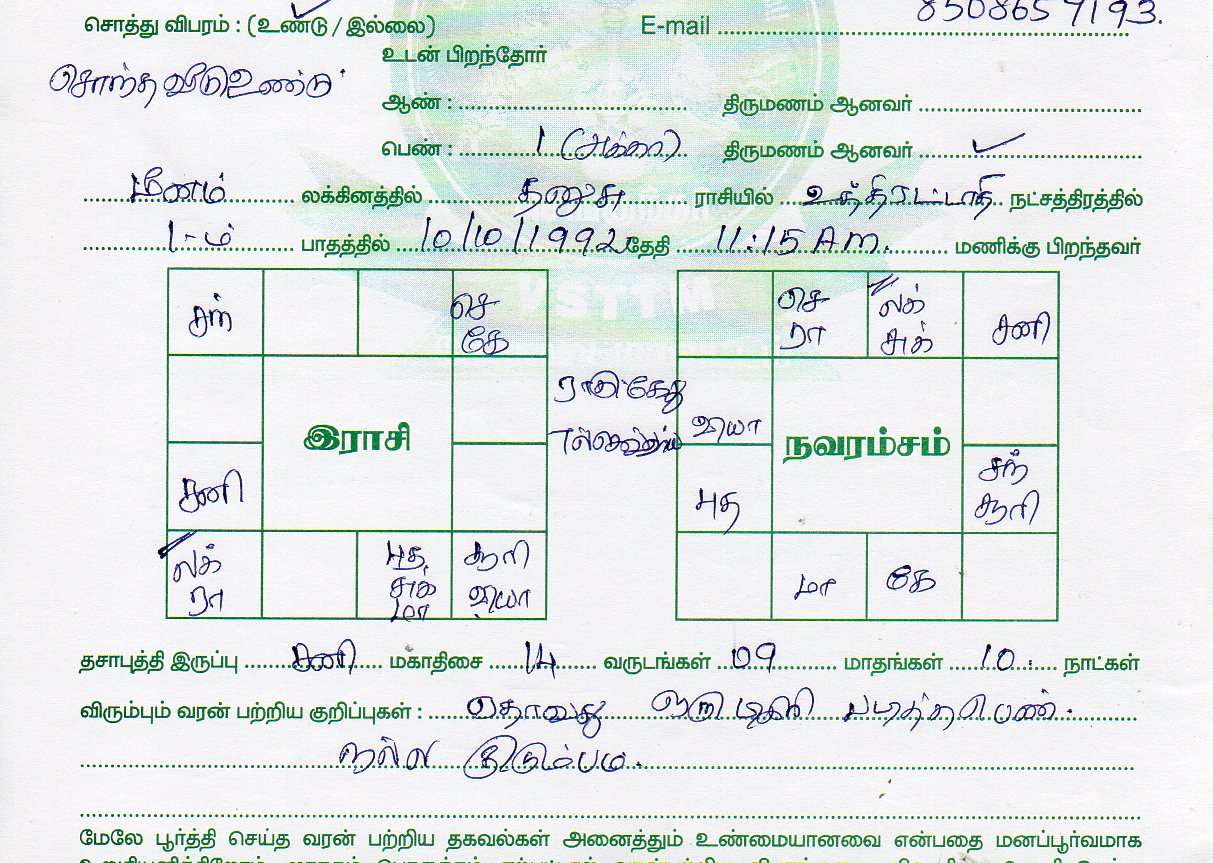 சொத்து விபரம் : (உண்டு / இல்லை) E-mail 8508659193.
உடன் பிறந்தோர்
சொந்த வீடு உண்டு
ஆண் : திருமணம் ஆனவர்
பெண் : 1 (அக்கா) திருமணம் ஆனவர் ✓
மீனம் லக்கினத்தில் தனுசு ராசியில் உத்திரட்டாதி நட்சத்திரத்தில்
1-ம் பாதத்தில் 10/10/1992 தேதி 11:15 A.m. மணிக்கு பிறந்தவர்
சந் செ கே
செ ரா லக் சுக் சனி
ராகு கேது
இராசி
வியா
நவாம்சம்
சனி
புத சந் சூரி
லக் ரா புத சுக் மா சூரி வியா
மா கே
தசாபுத்தி இருப்பு சனி மகாதிசை 14 வருடங்கள் 09 மாதங்கள் 10 நாட்கள்
விரும்பும் வரன் பற்றிய குறிப்புகள் : ஏதாவது ஒரு டிகிரி படித்த பெண்.
நல்ல குடும்பம்.
மேலே பூர்த்தி செய்த வரன் பற்றிய தகவல்கள் அனைத்தும் உண்மையானவை என்பதை மனப்பூர்வமாக